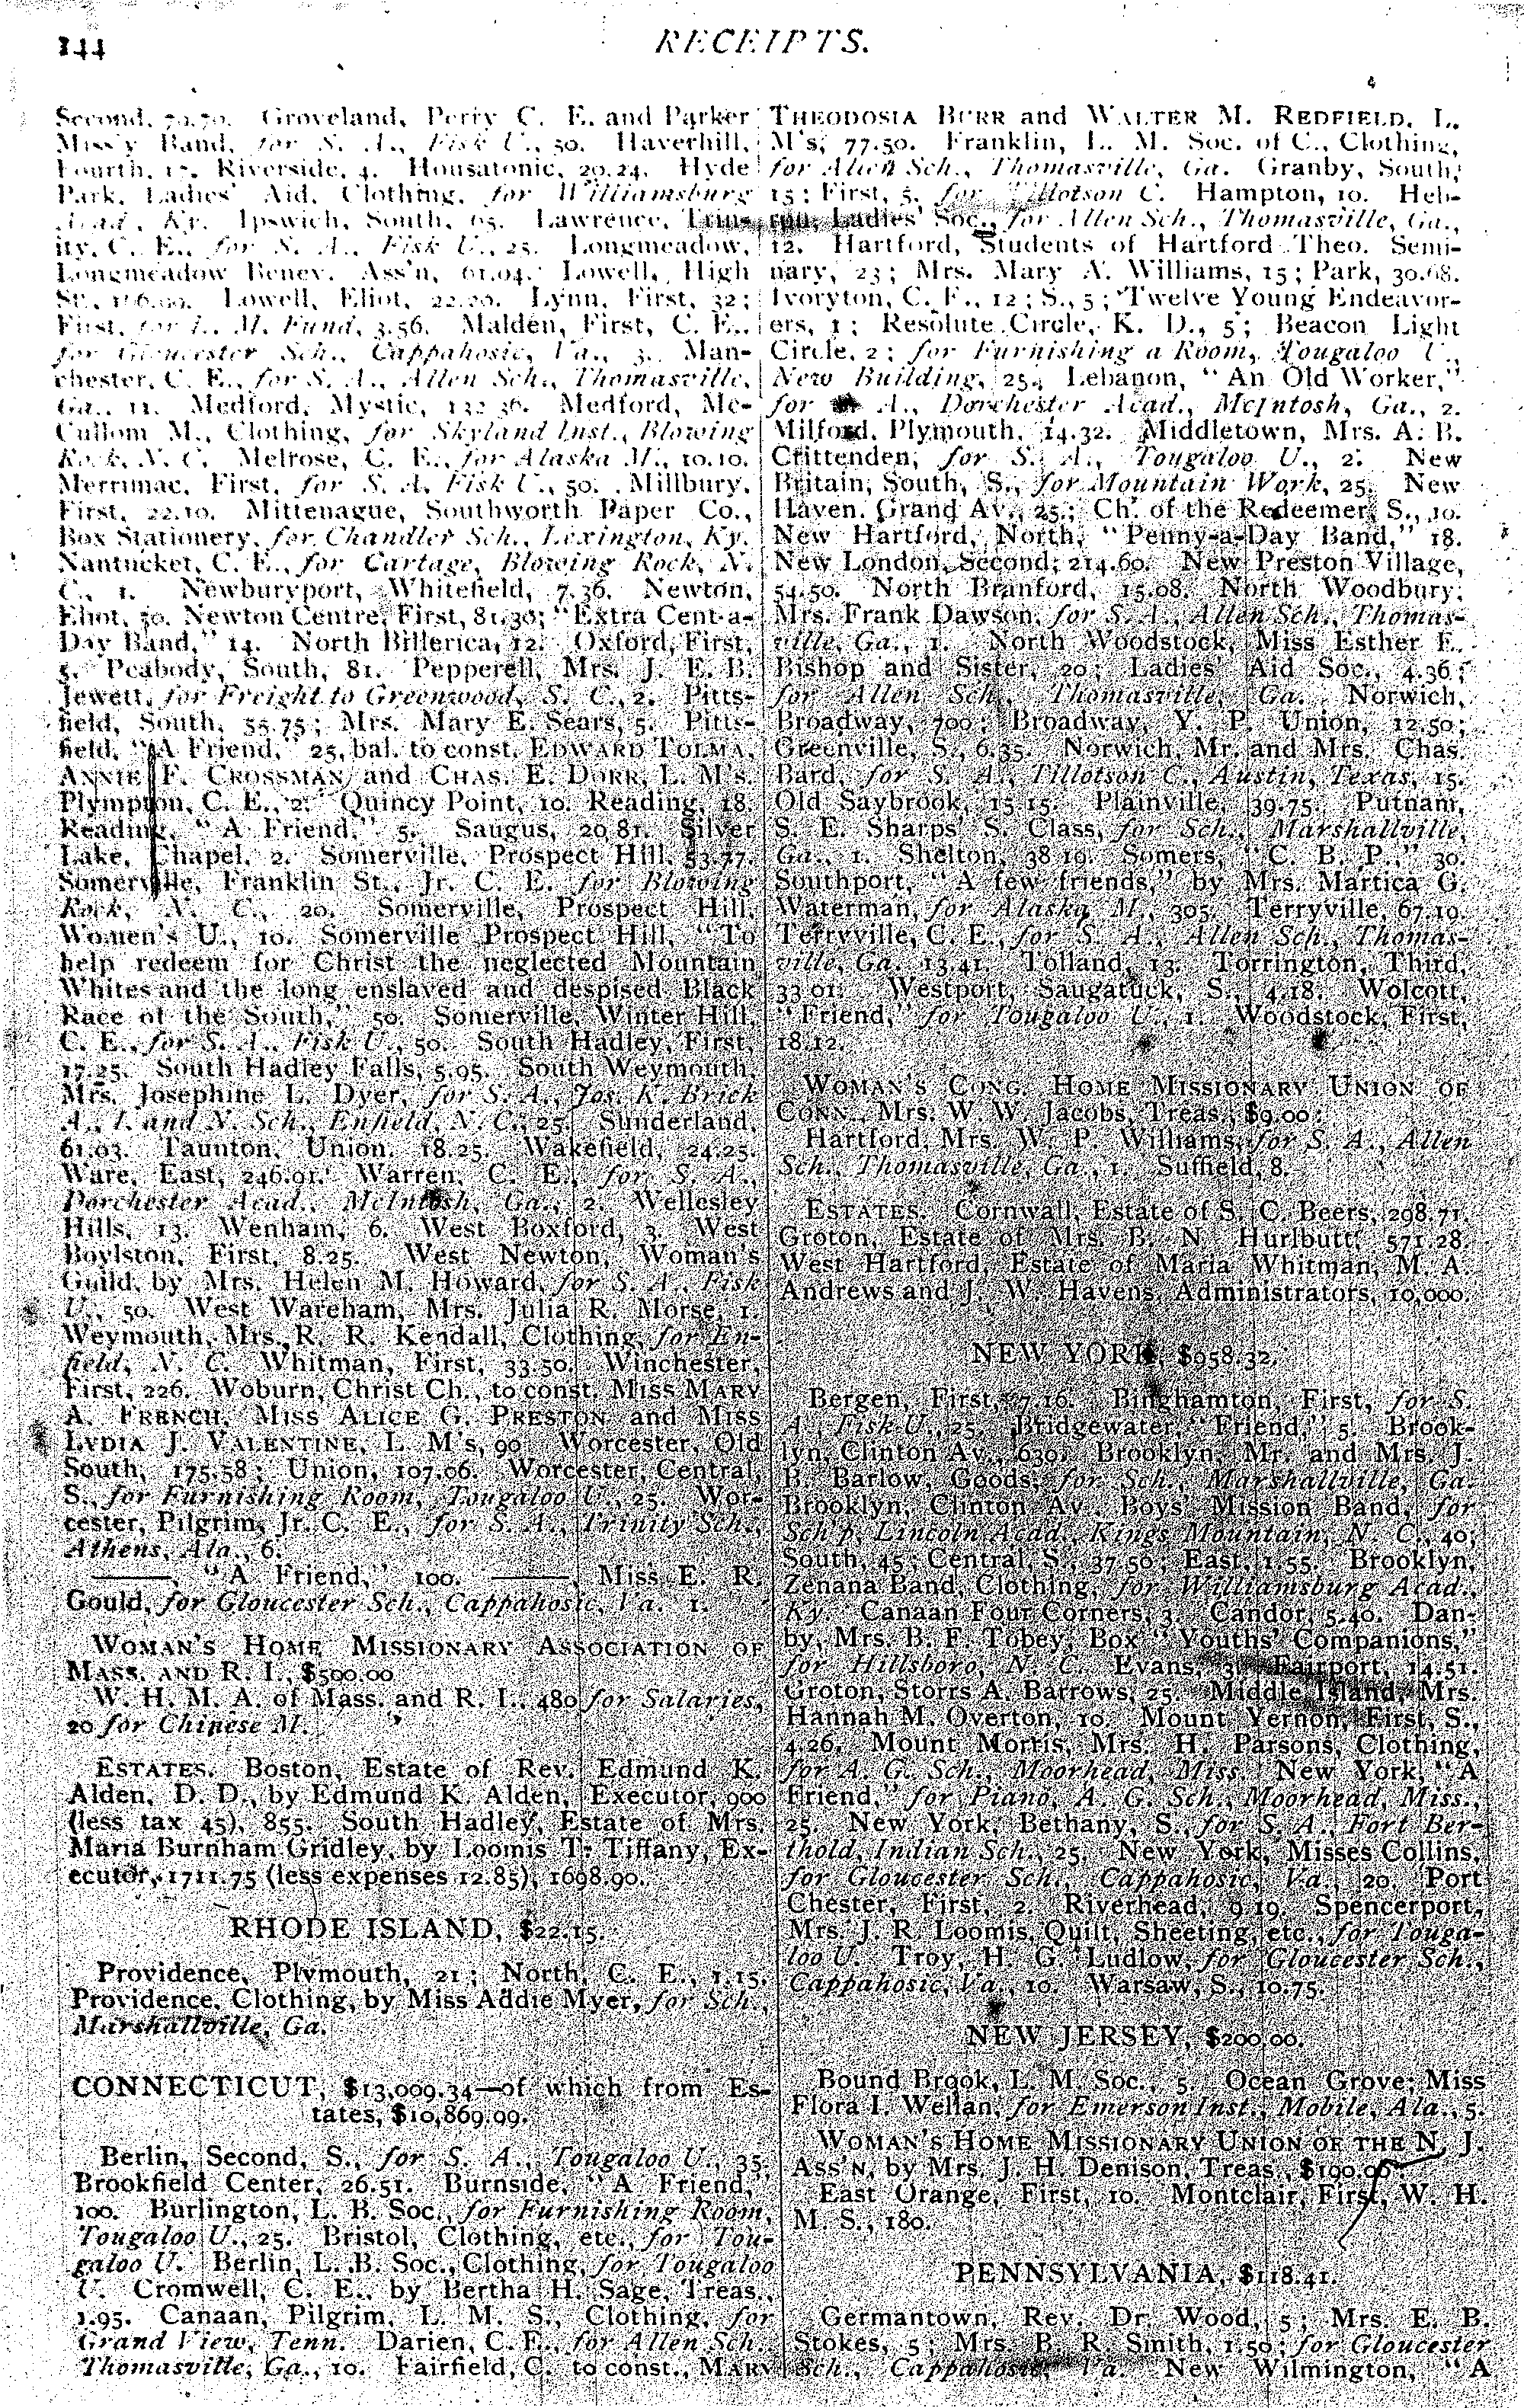 144
RECEIPTS.
Second, 70.70. Groveland, Perry C. E. and Parker
Miss'y Band, for S. A., Fisk U., 50. Haverhill,
Fourth, 17. Riverside, 4. Housatonic, 20.24. Hyde
Park, Ladies' Aid, Clothing, for Williamsburg
Acad., Ky. Ipswich, South, 65. Lawrence, Trin-
ity, C. E., for S. A., Fisk U., 25. Longmeadow,
Longmeadow Benev. Ass'n, 61.04. Lowell, High
St., Lowell, Eliot, Lynn, First, 32;
First, for L. M. Fund, 3.56. Malden, First, C. E.,
for Gloucester Sch., Cappahosic, Va., 3. Man-
chester, C. E., for S. A., Allen Sch., Thomasville,
Ga., 11. Medford, Mystic, 132.36. Medford, Mc-
Cullom M., Clothing, for Skyland Inst., Blowing
Rock, N. C. Melrose, C. E., for Alaska M., 10.10.
Merrimac, First, for S. A. Fisk U., 50. Millbury,
First, 22.10. Mittenague, Southworth Paper Co.,
Box Stationery, for Chandler Sch., Lexington, Ky.
Nantucket, C. E., for Cartage, Blowing Rock, N.
C., 1. Newburyport, Whitefield, 7.36. Newton,
Eliot, 50. Newton Centre, First, 81.30; "Extra Cent-a-
Day Band," 14. North Billerica, 12. Oxford, First,
5. Peabody, South, 81. Pepperell, Mrs. J. E. B.
Jewett, for Freight to Greenwood, S. C., 2. Pitts-
field, South, 55.75; Mrs. Mary E. Sears, 5. Pitts-
field, "A Friend," 25, bal. to const. EDWARD TOLMA,
ANNIE F. CROSSMAN and CHAS. E. DORR, L. M's.
Plympton, C. E., 2. Quincy Point, 10. Reading, 18.
Reading, "A Friend," 5. Saugus, 20.81. Silver
Lake, Chapel, 2. Somerville, Prospect Hill, 53.77.
Somerville, Franklin St., Jr. C. E. for Blowing
Rock, N. C., 20. Somerville, Prospect Hill,
Women's U., 10. Somerville Prospect Hill, "To
help redeem for Christ the neglected Mountain
Whites and the long enslaved and despised Black
Race of the South," 50. Somerville, Winter Hill,
C. E., for S. A., Fisk U., 50. South Hadley, First,
17.25. South Hadley Falls, 5.95. South Weymouth,
Mrs. Josephine L. Dyer, for S. A., Jos. K. Brick
A., I. and N. Sch., Enfield, N. C., 25. Sunderland,
61.03. Taunton, Union, 18.25. Wakefield, 24.25.
Ware, East, 246.01. Warren, C. E., for S. A.,
Dorchester Acad., McIntosh, Ga., 2. Wellesley
Hills, 13. Wenham, 6. West Boxford, 3. West
Boylston, First, 8.25. West Newton, Woman's
Guild, by Mrs. Helen M. Howard, for S. A., Fisk
U., 50. West Wareham, Mrs. Julia R. Morse, 1.
Weymouth, Mrs. R. R. Kendall, Clothing, for En-
field, N. C. Whitman, First, 33.50. Winchester,
First, 226. Woburn, Christ Ch., to const. MISS MARY
A. FRENCH, MISS ALICE G. PRESTON and MISS
LYDIA J. VALENTINE, L. M's, 90 Worcester, Old
South, 175.58; Union, 107.06. Worcester, Central,
S., for Furnishing Room, Tougaloo U., 25. Wor-
cester, Pilgrim, Jr. C. E., for S. A., Trinity Sch.,
Athens, Ala., 6.
———, "A Friend," 100. ———, Miss E. R.
Gould, for Gloucester Sch., Cappahosic, Va. 1.
WOMAN'S HOME MISSIONARY ASSOCIATION OF
MASS. AND R. I., $500.00
W. H. M. A. of Mass. and R. I., 480 for Salaries,
20 for Chinese M.
ESTATES. Boston, Estate of Rev. Edmund K.
Alden, D. D., by Edmund K. Alden, Executor, 900
(less tax 45), 855. South Hadley, Estate of Mrs.
Maria Burnham Gridley, by Loomis T. Tiffany, Ex-
ecutor, 1711.75 (less expenses 12.85), 1698.90.
RHODE ISLAND, $22.15.
Providence, Plymouth, 21; North, C. E., 1.15.
Providence, Clothing, by Miss Addie Myer, for Sch.,
Marshallville, Ga.
CONNECTICUT, $13,009.34—of which from Es-
tates, $10,869.99.
Berlin, Second, S., for S. A., Tougaloo U., 35.
Brookfield Center, 26.51. Burnside, "A Friend,"
100. Burlington, L. B. Soc., for Furnishing Room,
Tougaloo U., 25. Bristol, Clothing, etc., for Tou-
galoo U. Berlin, L. B. Soc., Clothing, for Tougaloo
U. Cromwell, C. E., by Bertha H. Sage, Treas.,
1.95. Canaan, Pilgrim, L. M. S., Clothing, for
Grand View, Tenn. Darien, C. E., for Allen Sch.
Thomasville, Ga., 10. Fairfield, C. to const., MARY
THEODOSIA BURR and WALTER M. REDFIELD, L.
M's, 77.50. Franklin, L. M. Soc. of C., Clothing,
for Allen Sch., Thomasville, Ga. Granby, South,
15; First, 5, for Tillotson C. Hampton, 10. Heb-
ron, Ladies' Soc., for Allen Sch., Thomasville, Ga.,
12. Hartford, Students of Hartford Theo. Semi-
nary, 23; Mrs. Mary A. Williams, 15; Park, 30.68.
Ivoryton, C. E., 12; S., 5; Twelve Young Endeavor-
ers, 1; Resolute Circle, K. D., 5; Beacon Light
Circle, 2; for Furnishing a Room, Tougaloo U.,
New Building, 25. Lebanon, "An Old Worker,"
for A., Dorchester Acad., McIntosh, Ga., 2.
Milford, Plymouth, 14.32. Middletown, Mrs. A. B.
Crittenden, for S. A., Tougaloo U., 2. New
Britain, South, S., for Mountain Work, 25. New
Haven, Grand Av., 25.; Ch. of the Redeemer, S., 10.
New Hartford, North, "Penny-a-Day Band," 18.
New London, Second; 214.60. New Preston Village,
54.50. North Branford, 15.08. North Woodbury,
Mrs. Frank Dawson, for S. A., Allen Sch., Thomas-
ville, Ga., 1. North Woodstock, Miss Esther E.
Bishop and Sister, 20; Ladies' Aid Soc., 4.36;
for Allen Sch., Thomasville, Ga. Norwich,
Broadway, 700; Broadway, Y. P. Union, 12.50;
Greenville, S., 6.35. Norwich, Mr. and Mrs. Chas.
Bard, for S. A., Tillotson C., Austin, Texas, 15.
Old Saybrook, 15.15. Plainville, 39.75. Putnam,
S. E. Sharps' S. Class, for Sch., Marshallville,
Ga., 1. Shelton, 38.19. Somers, "C. B. P.," 30.
Southport, "A few friends," by Mrs. Martica G.
Waterman, for Alaska M., 305. Terryville, 67.10.
Terryville, C. E., for S. A., Allen Sch., Thomas-
ville, Ga. 13.41. Tolland, 13. Torrington, Third,
33.01. Westport, Saugatuck, S., 4.18. Wolcott,
"Friend," for Tougaloo U., 1. Woodstock, First,
18.12.
WOMAN'S CONG. HOME MISSIONARY UNION OF
CONN., Mrs. W. W. Jacobs, Treas., $9.00:
Hartford, Mrs. W. P. Williams, for S. A., Allen
Sch., Thomasville, Ga., 1. Suffield, 8.
ESTATES. Cornwall, Estate of S. C. Beers, 298.71.
Groton, Estate of Mrs. B. N. Hurlbutt, 571.28.
West Hartford, Estate of Maria Whitman, M. A.
Andrews and J. W. Havens, Administrators, 10,000.
NEW YORK, $958.32.
Bergen, First, 7.16. Binghamton, First, for S.
A., Fisk U., 25. Bridgewater, "Friend," 5. Brook-
lyn, Clinton Av., 630. Brooklyn, Mr. and Mrs. J.
B. Barlow, Goods, for Sch., Marshallville, Ga.
Brooklyn, Clinton Av., Boys' Mission Band, for
Sch'p, Lincoln Acad., Kings Mountain, N. C., 40;
South, 45; Central, S., 37.50; East, 1.55. Brooklyn,
Zenana Band, Clothing, for Williamsburg Acad.,
Ky. Canaan Four Corners, 3. Candor, 5.40. Dan-
by, Mrs. B. F. Tobey, Box "Youths' Companions,"
for Hillsboro, N. C. Evans, 3. Fairport, 14.51.
Groton, Storrs A. Barrows, 25. Middle Island, Mrs.
Hannah M. Overton, 10. Mount Vernon, First, S.,
4.26. Mount Morris, Mrs. H. Parsons, Clothing,
for A. G. Sch., Moorhead, Miss. New York, "A
Friend," for Piano, A. G. Sch., Moorhead, Miss.,
25. New York, Bethany, S., for S. A., Fort Ber-
thold, Indian Sch., 25. New York, Misses Collins,
for Gloucester Sch., Cappahosic, Va., 20. Port
Chester, First, 2. Riverhead, 9.19. Spencerport,
Mrs. J. R. Loomis, Quilt, Sheeting, etc., for Touga-
loo U. Troy, H. G. Ludlow, for Gloucester Sch.,
Cappahosic, Va., 10. Warsaw, S., 10.75.
NEW JERSEY, $200.00.
Bound Brook, L. M. Soc., 5. Ocean Grove, Miss
Flora I. Wellan, for Emerson Inst., Mobile, Ala., 5.
WOMAN'S HOME MISSIONARY UNION OF THE N. J.
ASS'N, by Mrs. J. H. Denison, Treas., $190.00.
East Orange, First, 10. Montclair, First, W. H.
M. S., 180.
PENNSYLVANIA, $118.41.
Germantown, Rev. Dr. Wood, 5; Mrs. E. B.
Stokes, 5; Mrs. B. R. Smith, 1.50; for Gloucester
Sch., Cappahosic, Va. New Wilmington, "A